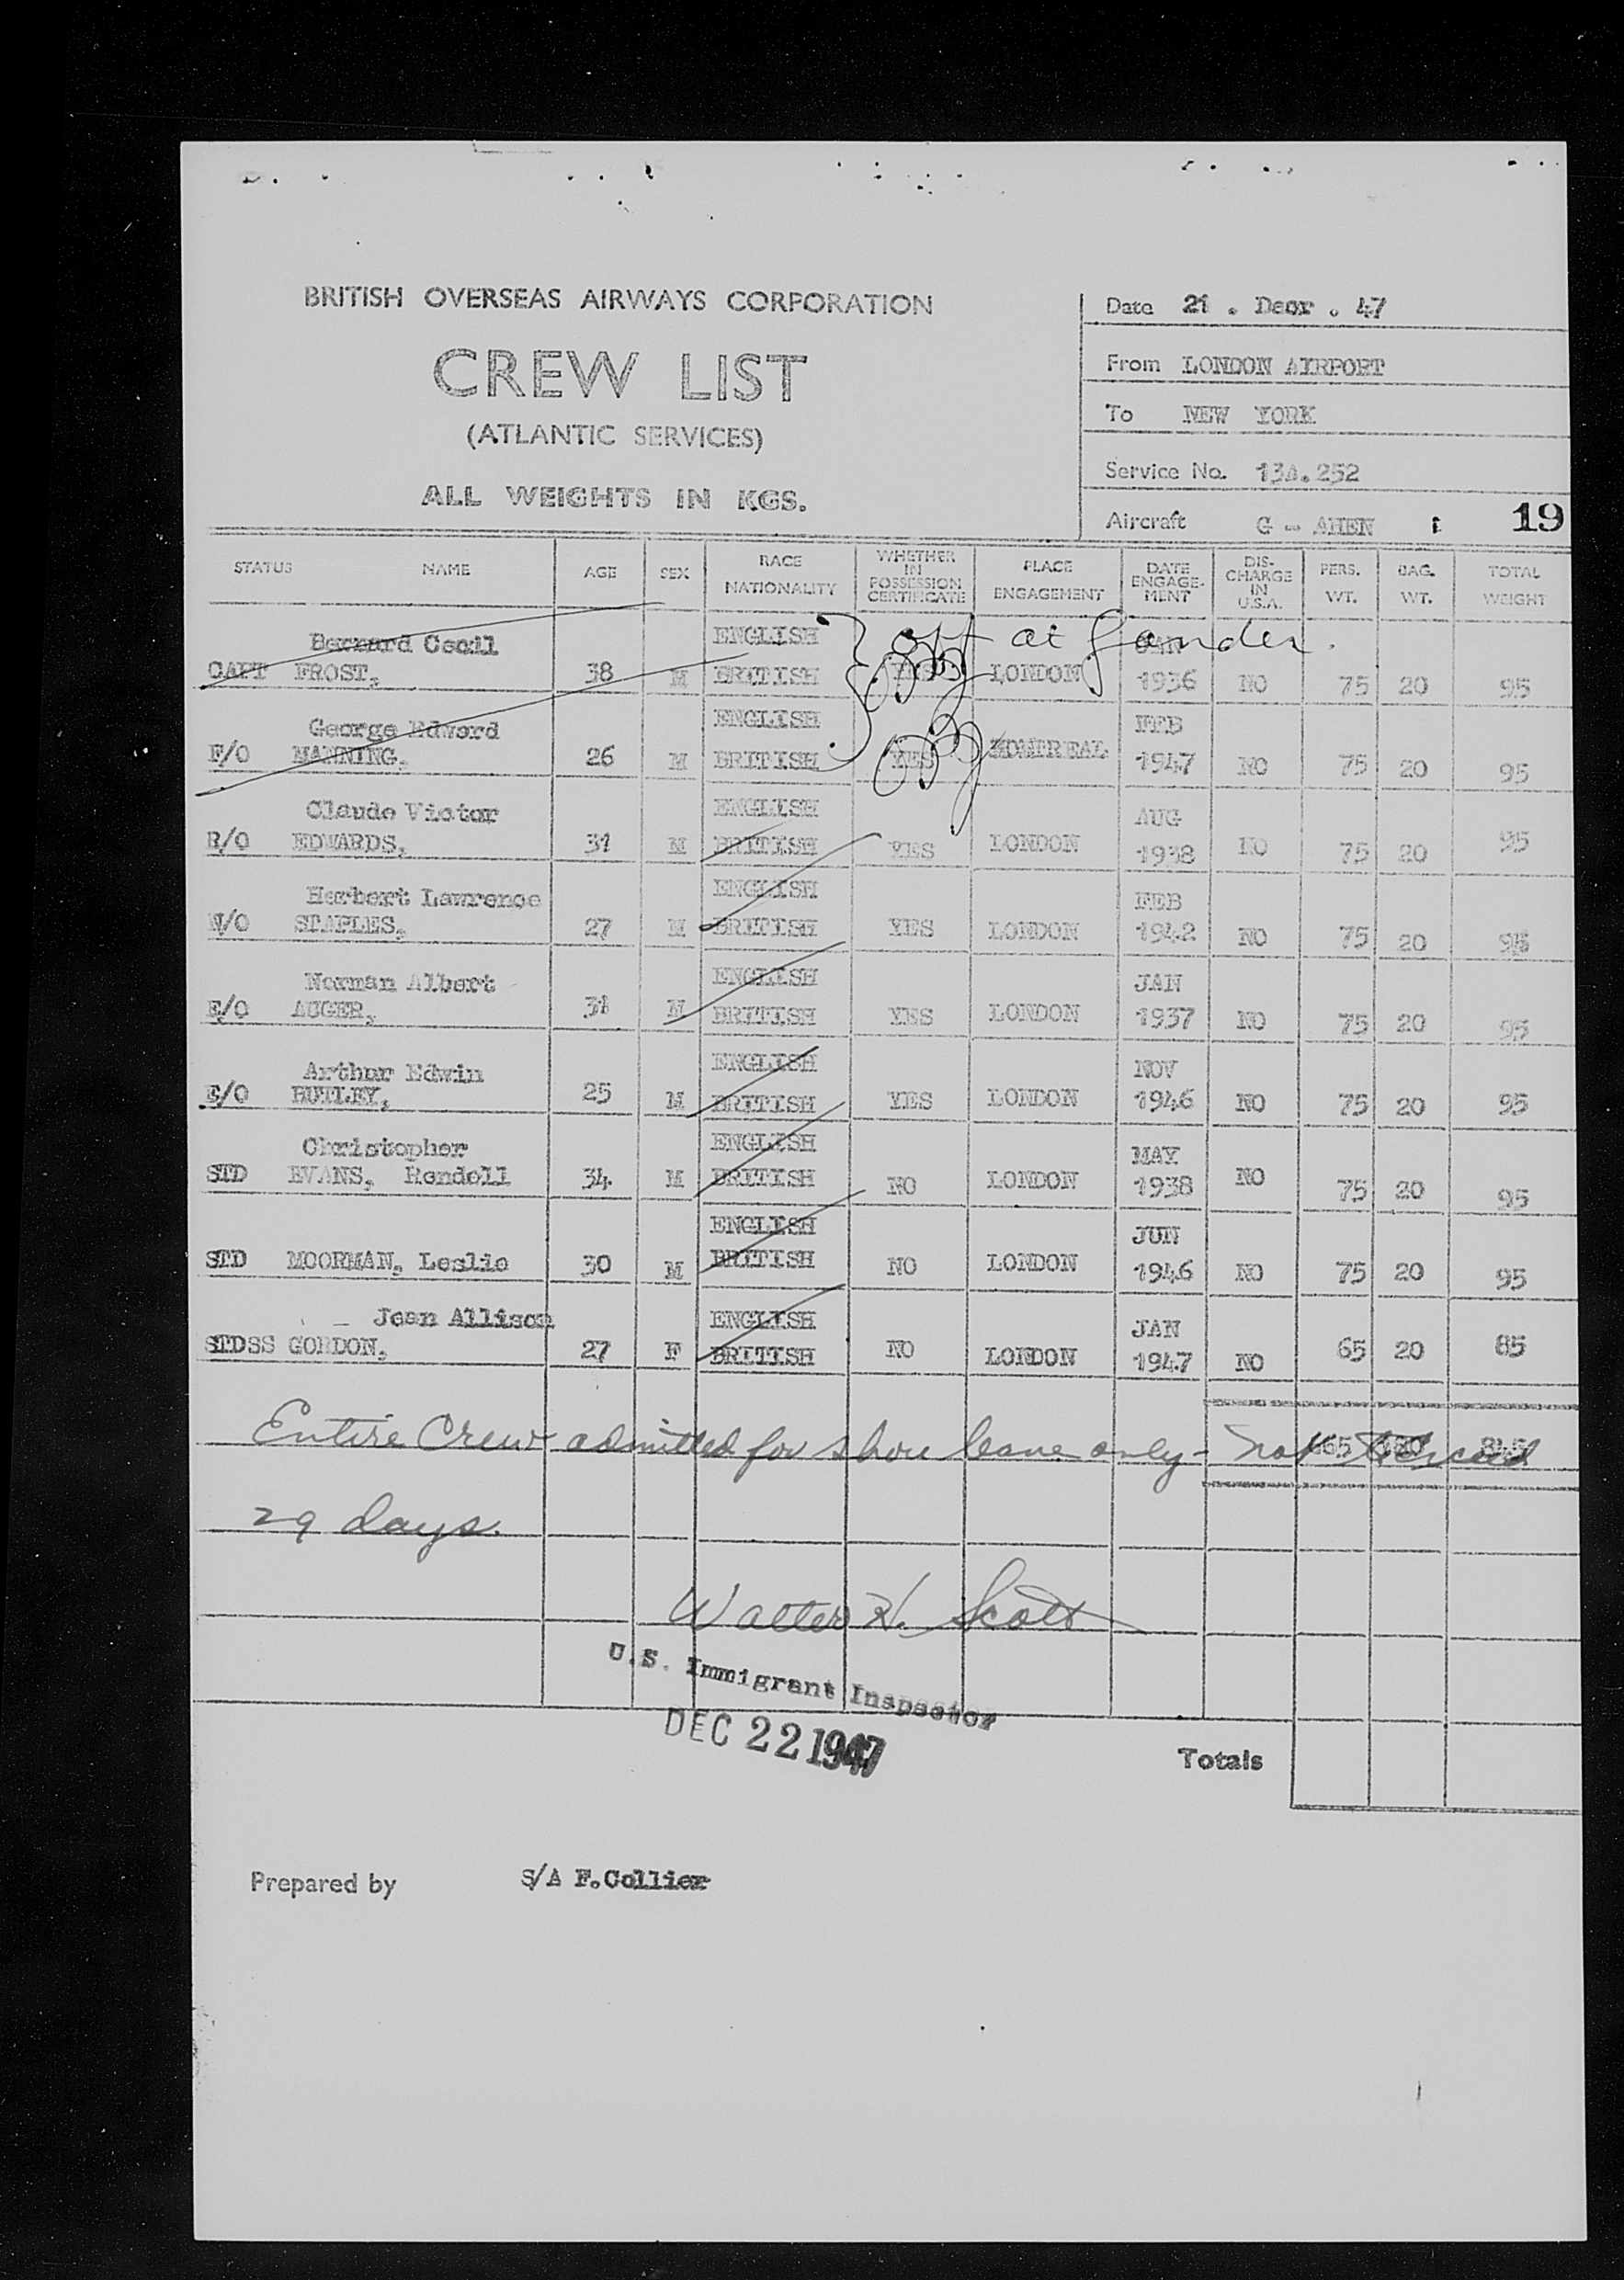 BRITISH OVERSEAS AIRWAYS CORPORATION
CREW LIST
(ATLANTIC SERVICES)
ALL WEIGHTS IN KGS.
Date 21 . Decr . 47
From LONDON AIRPORT
To NEW YORK
Service No. 13A.252
Aircraft G - AHEN 19
STATUS NAME AGE SEX RACE NATIONALITY WHETHER IN POSSESSION CERTIFICATE PLACE ENGAGEMENT DATE ENGAGE-MENT DIS-CHARGE IN U.S.A. PERS. WT. BAG. WT. TOTAL WEIGHT
Bernard Cecil ENGLISH off at Gander.
CAPT FROST, 38 M BRITISH YES LONDON 1936 NO 75 20 95
George Edward ENGLISH FEB
F/O MANNING, 26 M BRITISH YES MONTREAL 1947 NO 75 20 95
Claude Victor ENGLISH AUG
R/O EDWARDS, 31 M BRITISH YES LONDON 1938 NO 75 20 95
Herbert Lawrence ENGLISH FEB
N/O STAPLES, 27 M BRITISH YES LONDON 1942 NO 75 20 95
Norman Albert ENGLISH JAN
E/O AUGER, 31 M BRITISH YES LONDON 1937 NO 75 20 95
Arthur Edwin ENGLISH NOV
E/O HUTLEY, 25 M BRITISH YES LONDON 1946 NO 75 20 95
Christopher ENGLISH MAY
STD EVANS, Rendell 34 M BRITISH NO LONDON 1938 NO 75 20 95
ENGLISH JUN
STD MOORMAN, Leslie 30 M BRITISH NO LONDON 1946 NO 75 20 95
Jean Allison ENGLISH JAN
STDSS GORDON, 27 F BRITISH NO LONDON 1947 NO 65 20 85
Entire Crew admitted for shore leave only - not to exceed
29 days.
Walter H. Scott
U.S. Immigrant Inspector
DEC 22 1947
Totals
Prepared by S/A F.Collier